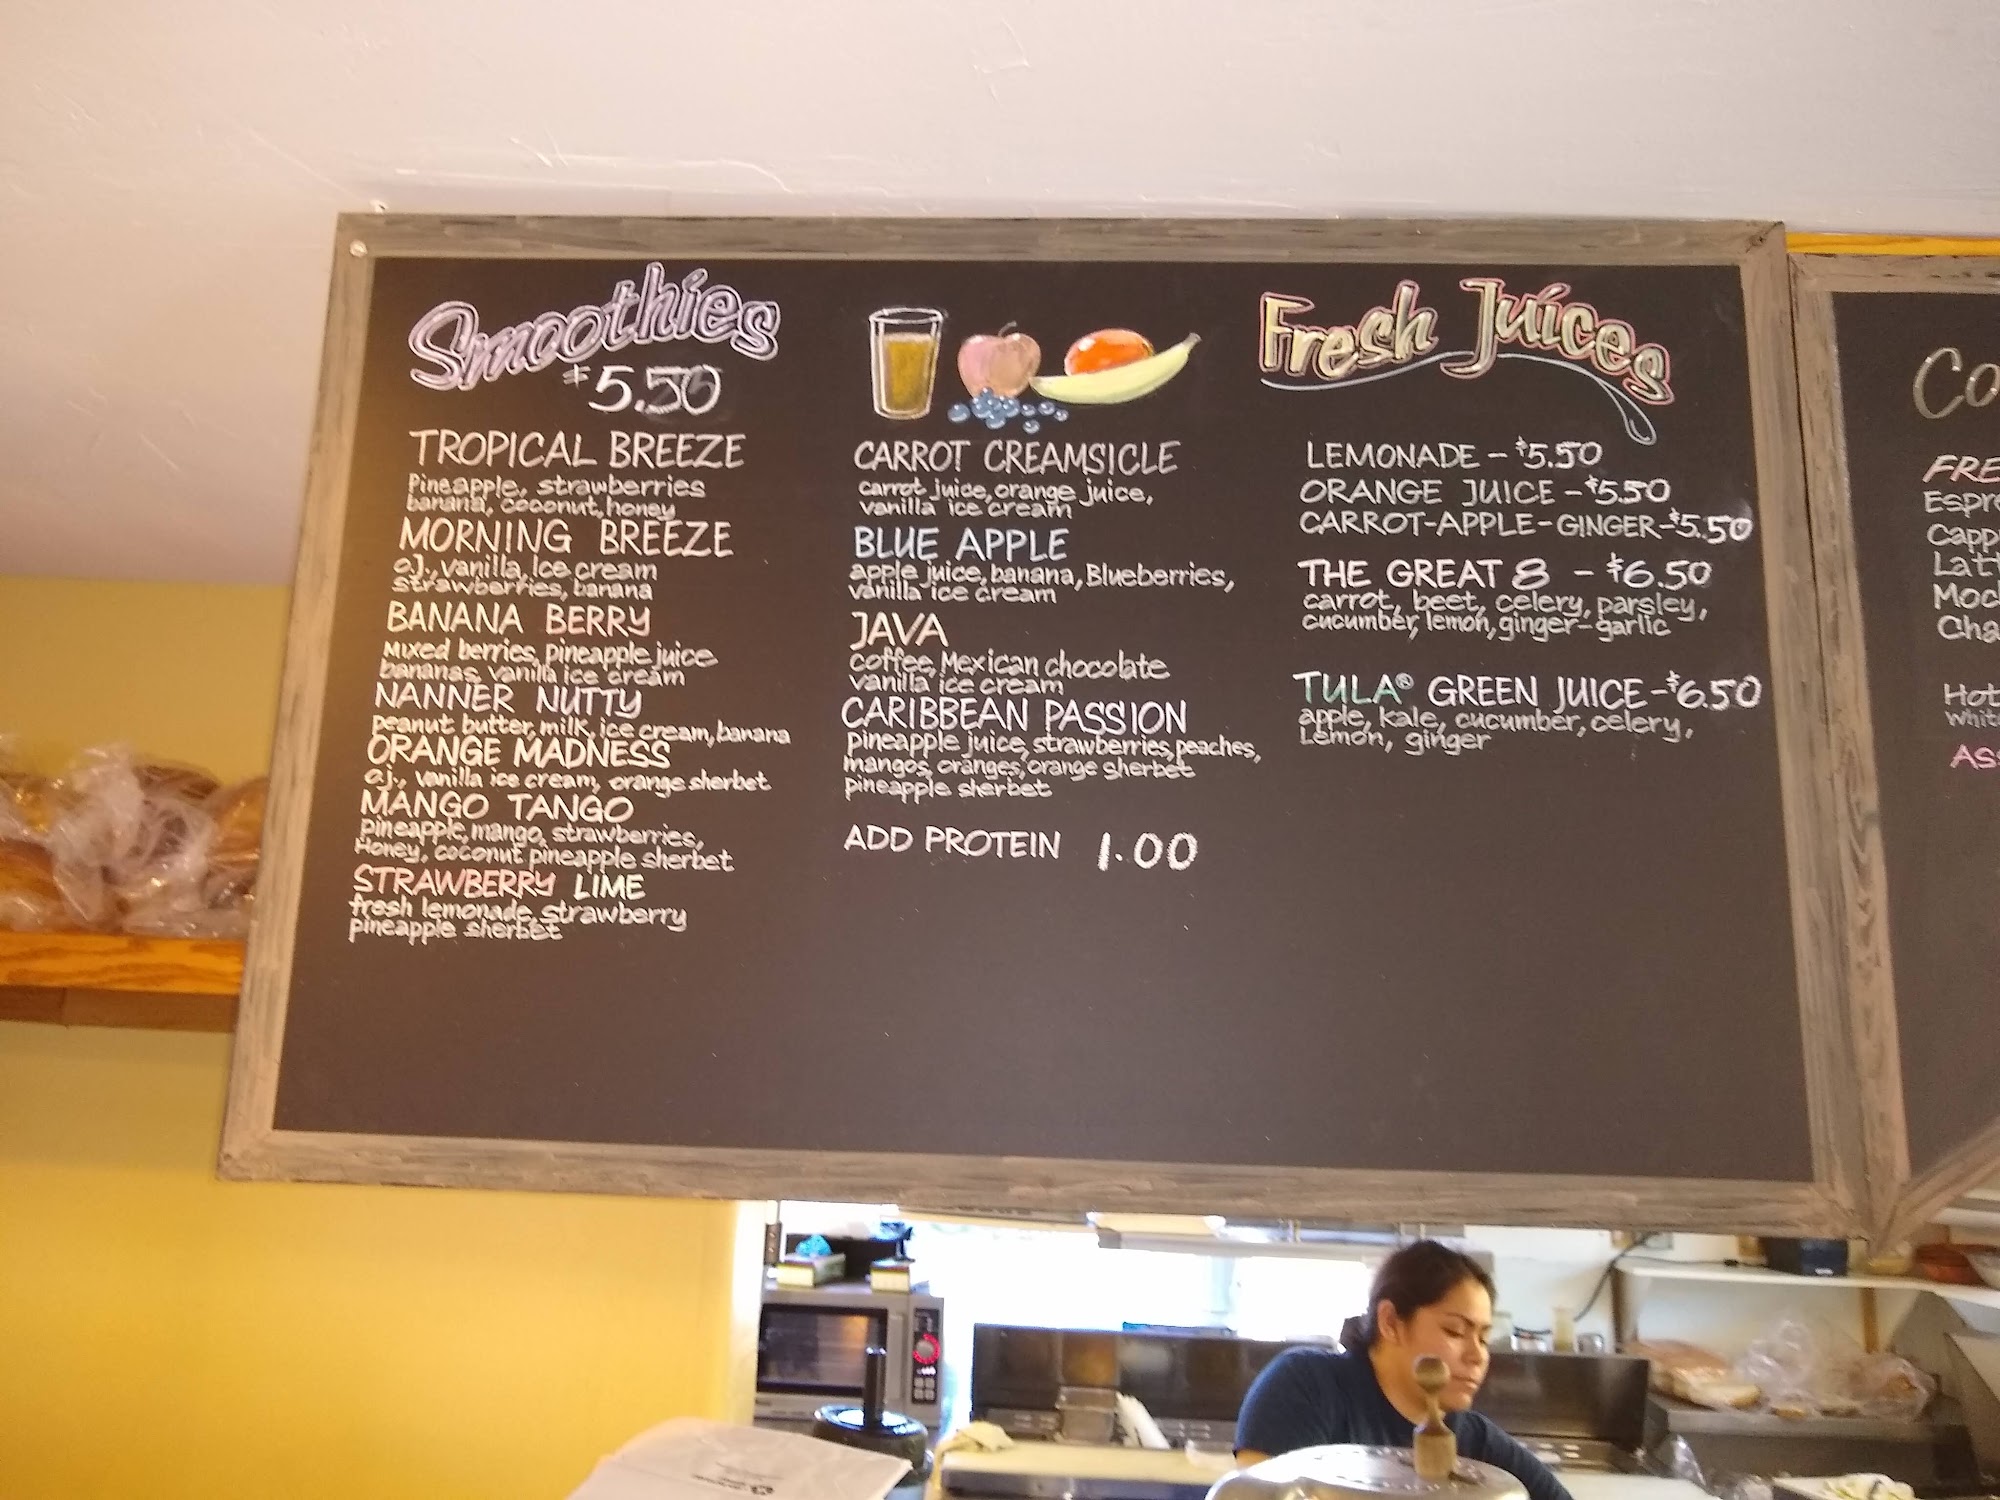 Smoothies
$5.50
TROPICAL BREEZE
Pineapple, strawberries
banana, coconut, honey
MORNING BREEZE
o.J., vanilla ice cream
strawberries, banana
BANANA BERRY
Mixed berries, pineapple juice
bananas, vanilla ice cream
NANNER NUTTY
peanut butter, milk, ice cream, banana
ORANGE MADNESS
o.j., vanilla ice cream, orange sherbet
MANGO TANGO
pineapple, mango, strawberries,
Honey, coconut pineapple sherbet
STRAWBERRY LIME
fresh lemonade, strawberry
pineapple sherbet
CARROT CREAMSICLE
carrot juice, orange juice,
vanilla ice cream
BLUE APPLE
apple juice, banana, Blueberries,
vanilla ice cream
JAVA
coffee, Mexican chocolate
vanilla ice cream
CARIBBEAN PASSION
pineapple juice, strawberries, peaches,
mangos, oranges, orange sherbet
pineapple sherbet
ADD PROTEIN 1.00
Fresh Juices
LEMONADE - $5.50
ORANGE JUICE - $5.50
CARROT-APPLE-GINGER-$5.50
THE GREAT 8 - $6.50
carrot, beet, celery, parsley,
cucumber, lemon, ginger-garlic
TULA® GREEN JUICE-$6.50
apple, kale, cucumber, celery,
Lemon, ginger
Co
FRE
Espre
Capp
Latt
Moc
Cha
Hot
White
ASS